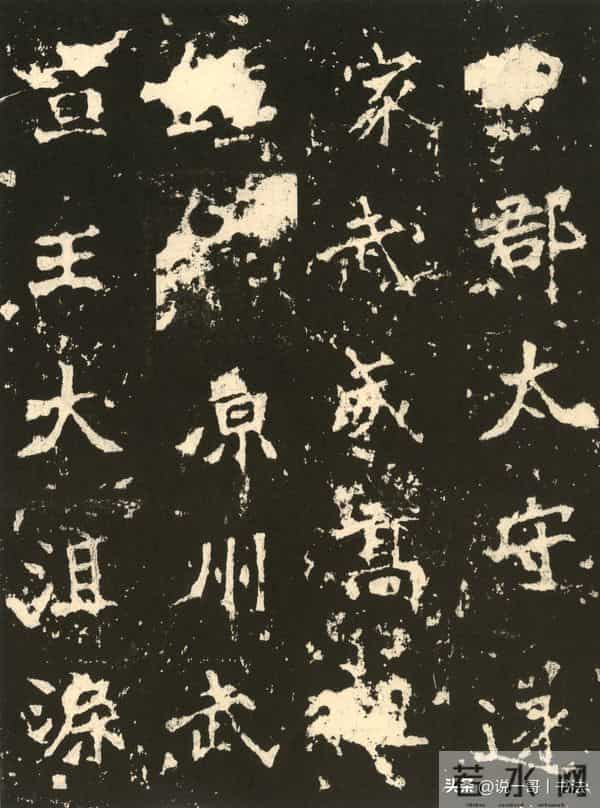 郡太守遂
家武威髙
凉州武
宣王大沮渠
頭条@说一哥丨书法
若水网